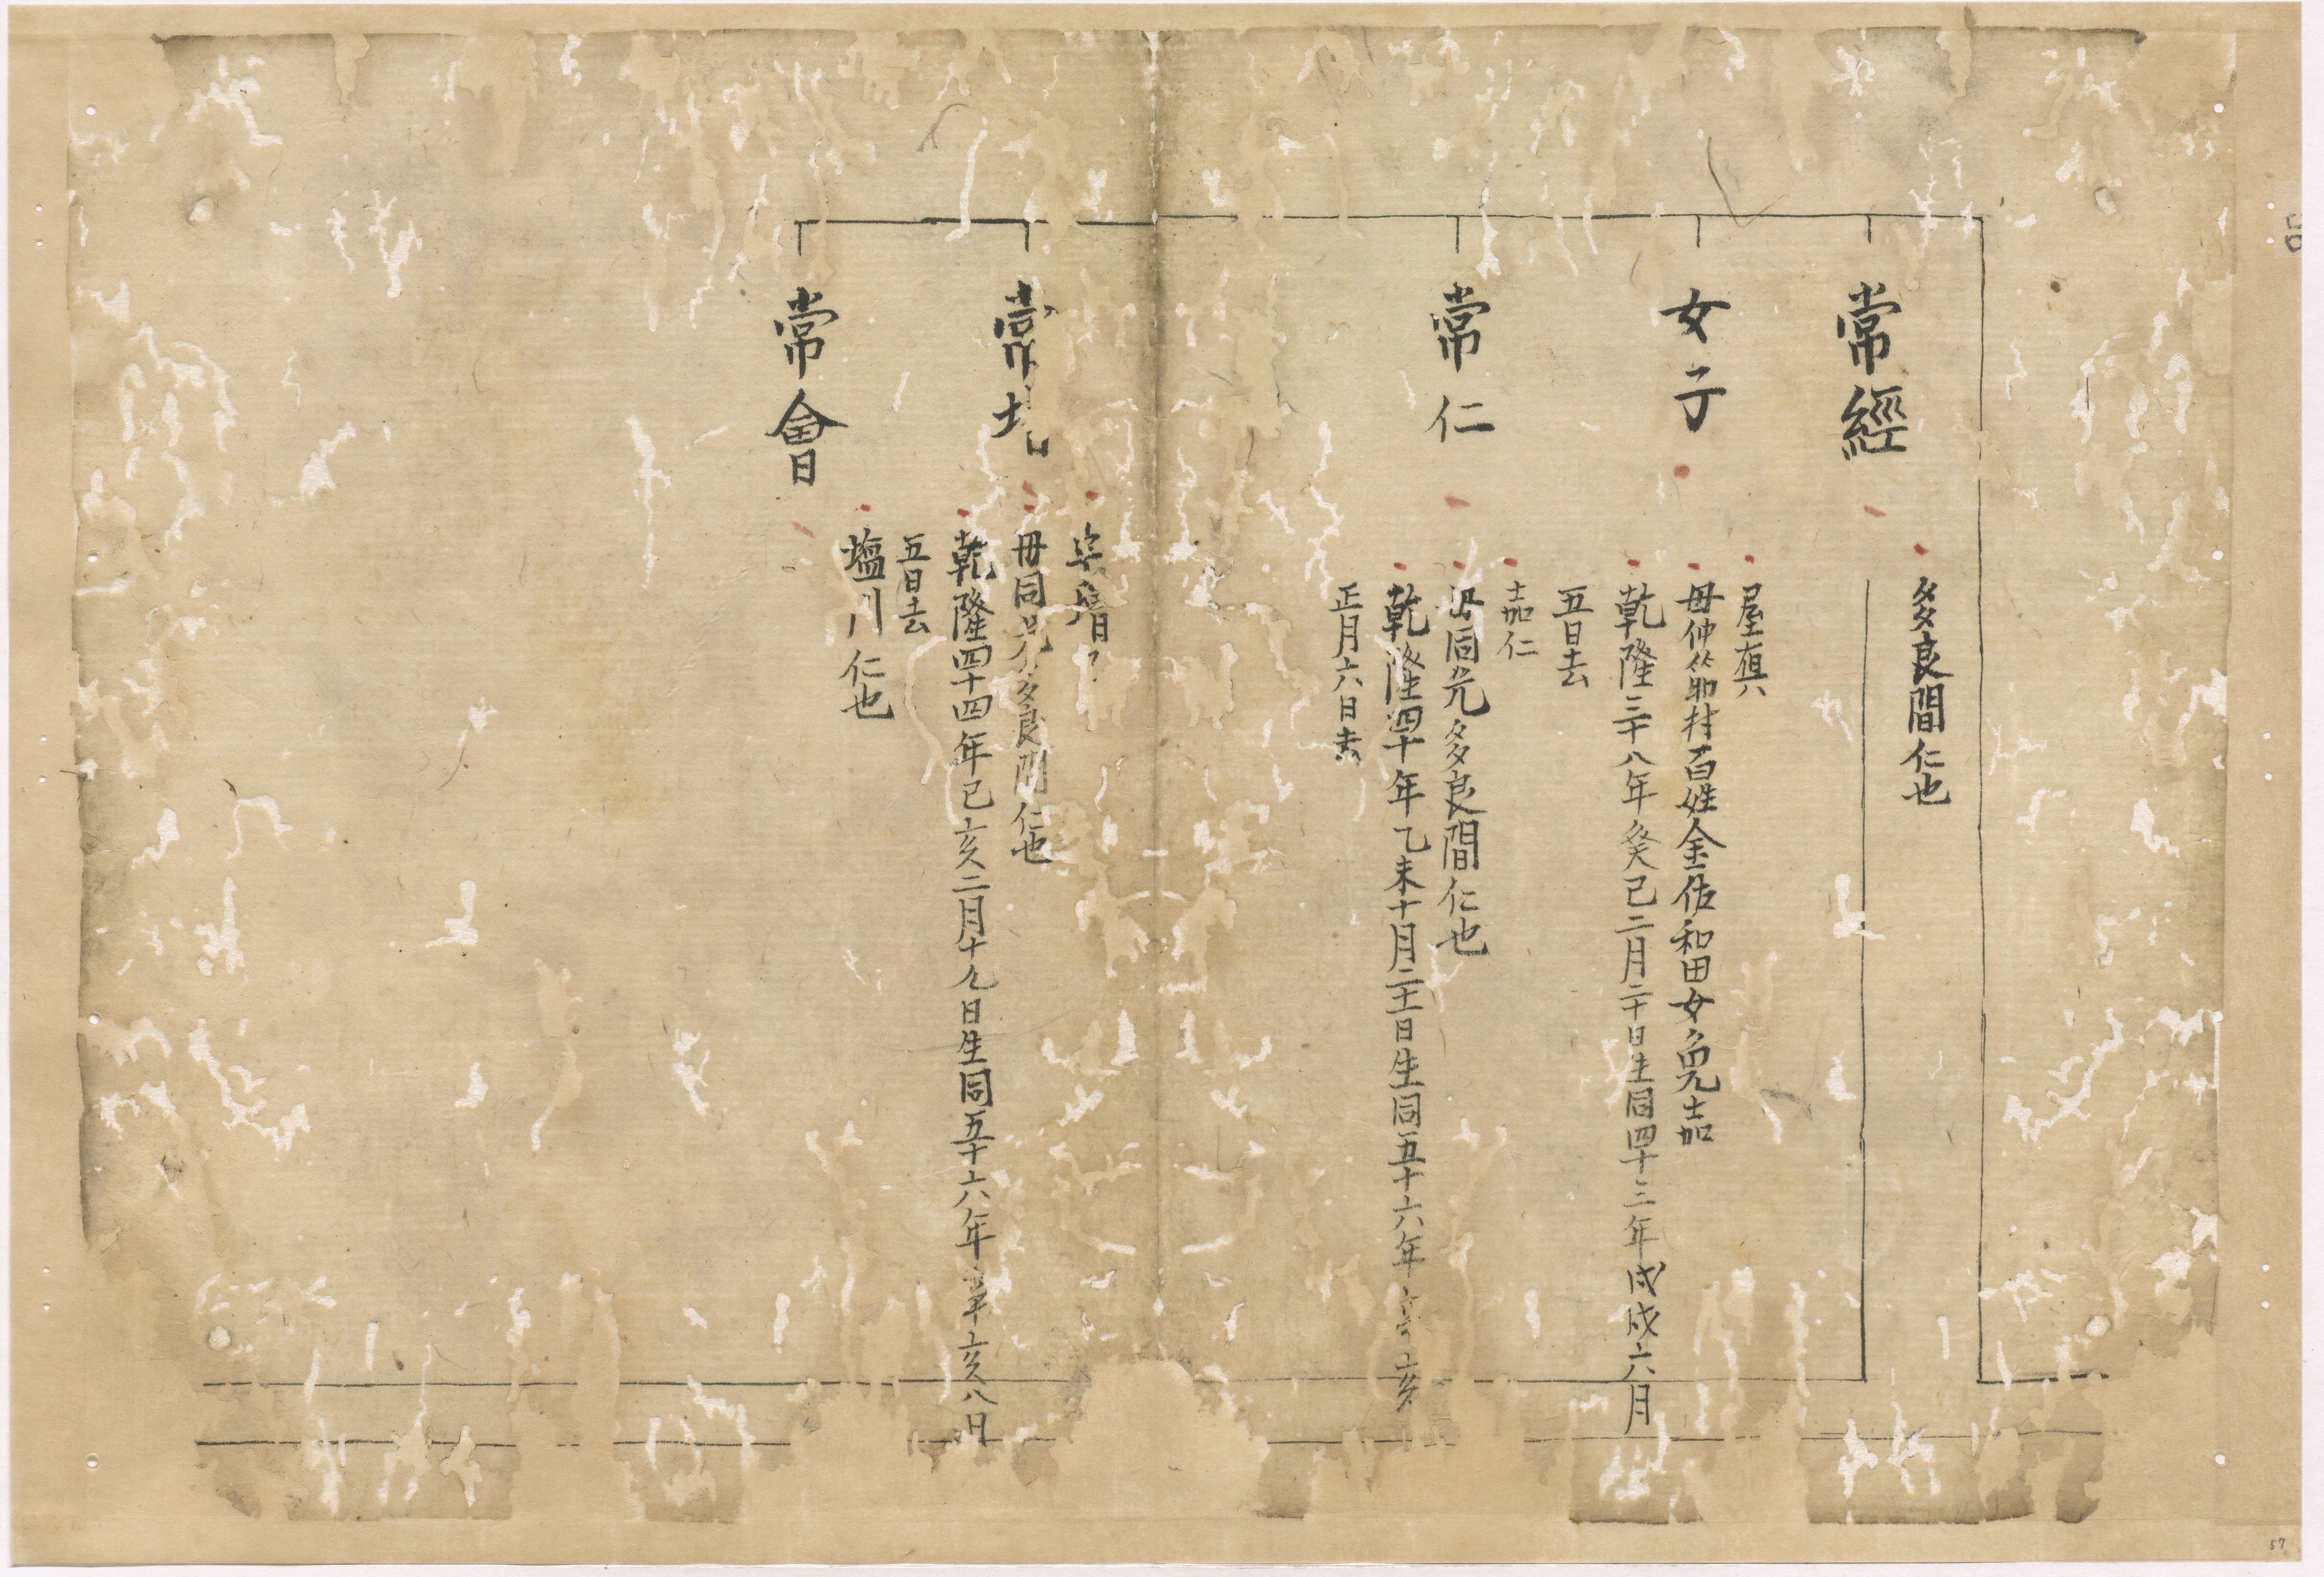 常經
多良間仁也
女子
屋真
母仲筋村百姓金佐和田女免嘉
乾隆三十八年癸巳二月二十日生同四十三年戊戌六月
五日去
常仁
嘉仁
母同先多良間仁也
乾隆四十年乙未十月二十一日生同五十六年辛亥
正月六日去
常
母同先多良間仁也
乾隆四十四年己亥二月十九日生同五十六年辛亥八月
五日去
常會
塩川仁也
57